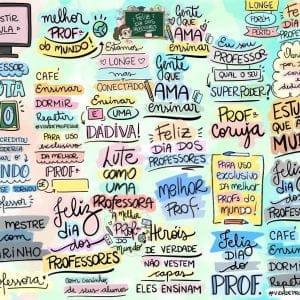 melhor
PROFª
do mundo!
Feliz
DIA DOS
PROFESSORES
Gente
QUE
AMA
ensinar
LONGE
PORÉM
PERTO
Estamos
LONGE
mas
CONECTADOS
Eu sou
PROFESSOR
QUAL O SEU
SUPERPODER?
CAFÉ
Ensinar
DORMIR
Repetir
Ensinar
É UMA
DÁDIVA!
Gente
QUE
AMA
ensinar
PROFª
coruja
PARA USO
exclusivo
DA MELHOR
PROFª
LUTE
COMO
UMA
PROFESSORA
Feliz
DIA DOS
PROFESSORES
melhor
Prof.
PARA USO
EXCLUSIVO
DA MELHOR
PROFª DO
MUNDO!
Feliz
dia
dos
PROFESSORES
A melhor
Prof.
com carinho,
de seus alunos
Heróis
DE VERDADE
NÃO VESTEM
capas
ELES ENSINAM
Feliz
DIA
DO
PROF.
MESTRE
COM
CARINHO
CAFÉ
Ensinar
DORMIR
Repetir